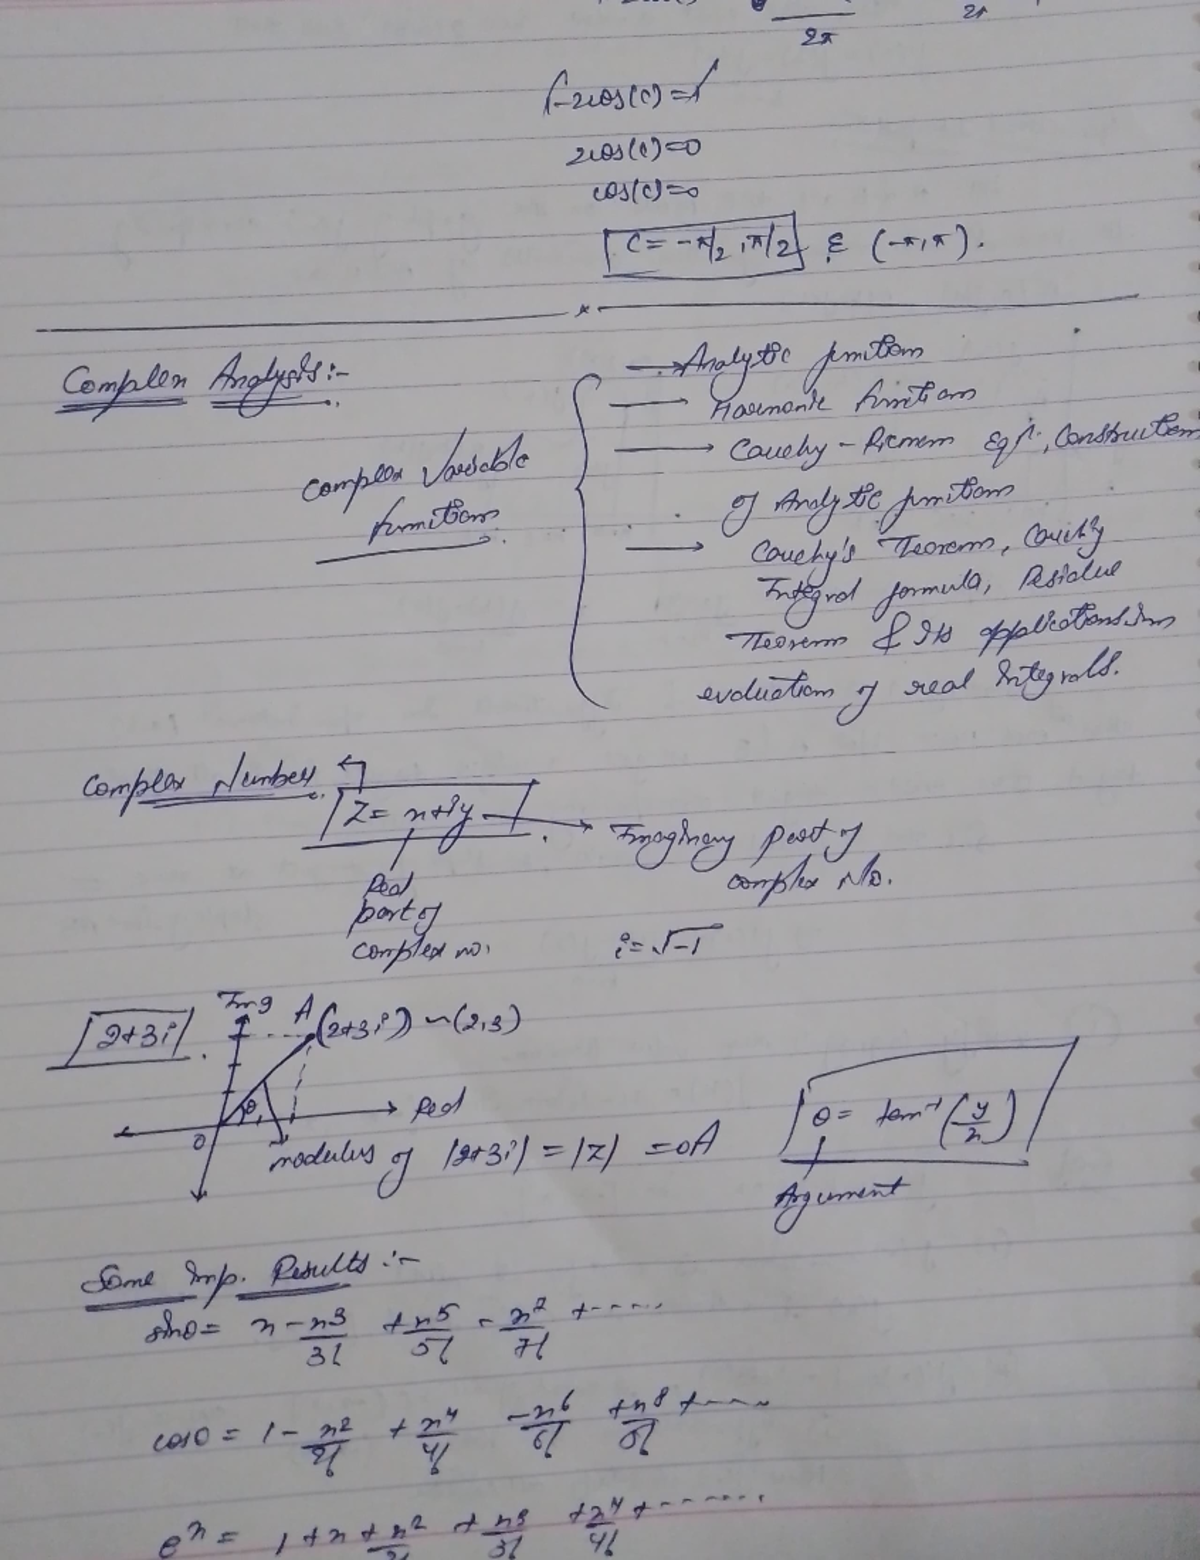 2π
2π
1-2cos(c)=1
2cos(c)=0
cos(c)=0
C = -π/2, π/2 ε (-π, π).
Complex Analysis:-
→ Analytic functions
→ Harmonic functions
Complex Variable functions
→ Cauchy-Riemann Eqn., Construction
of Analytic functions
→ Cauchy's Theorem, Cauchy
Integral formula, Residue
Theorem & its applications in
evaluation of real Integrals.
Complex Number
Z = x+iy → Imaginary part of
complex No.
Real
part of
complex no.
i = √-1
Img
2+3i
A (2+3i) ~ (2,3)
θ
Real
O
modulus of |2+3i| = |Z| = OA
θ = tan⁻¹ (y/x)
Argument
Some Imp. Results:-
sinθ = x - x³/3! + x⁵/5! - x⁷/7! + ......
cosθ = 1 - x²/2! + x⁴/4! - x⁶/6! + x⁸/8! + ......
eˣ = 1 + x + x²/2! + x³/3! + x⁴/4! + ......